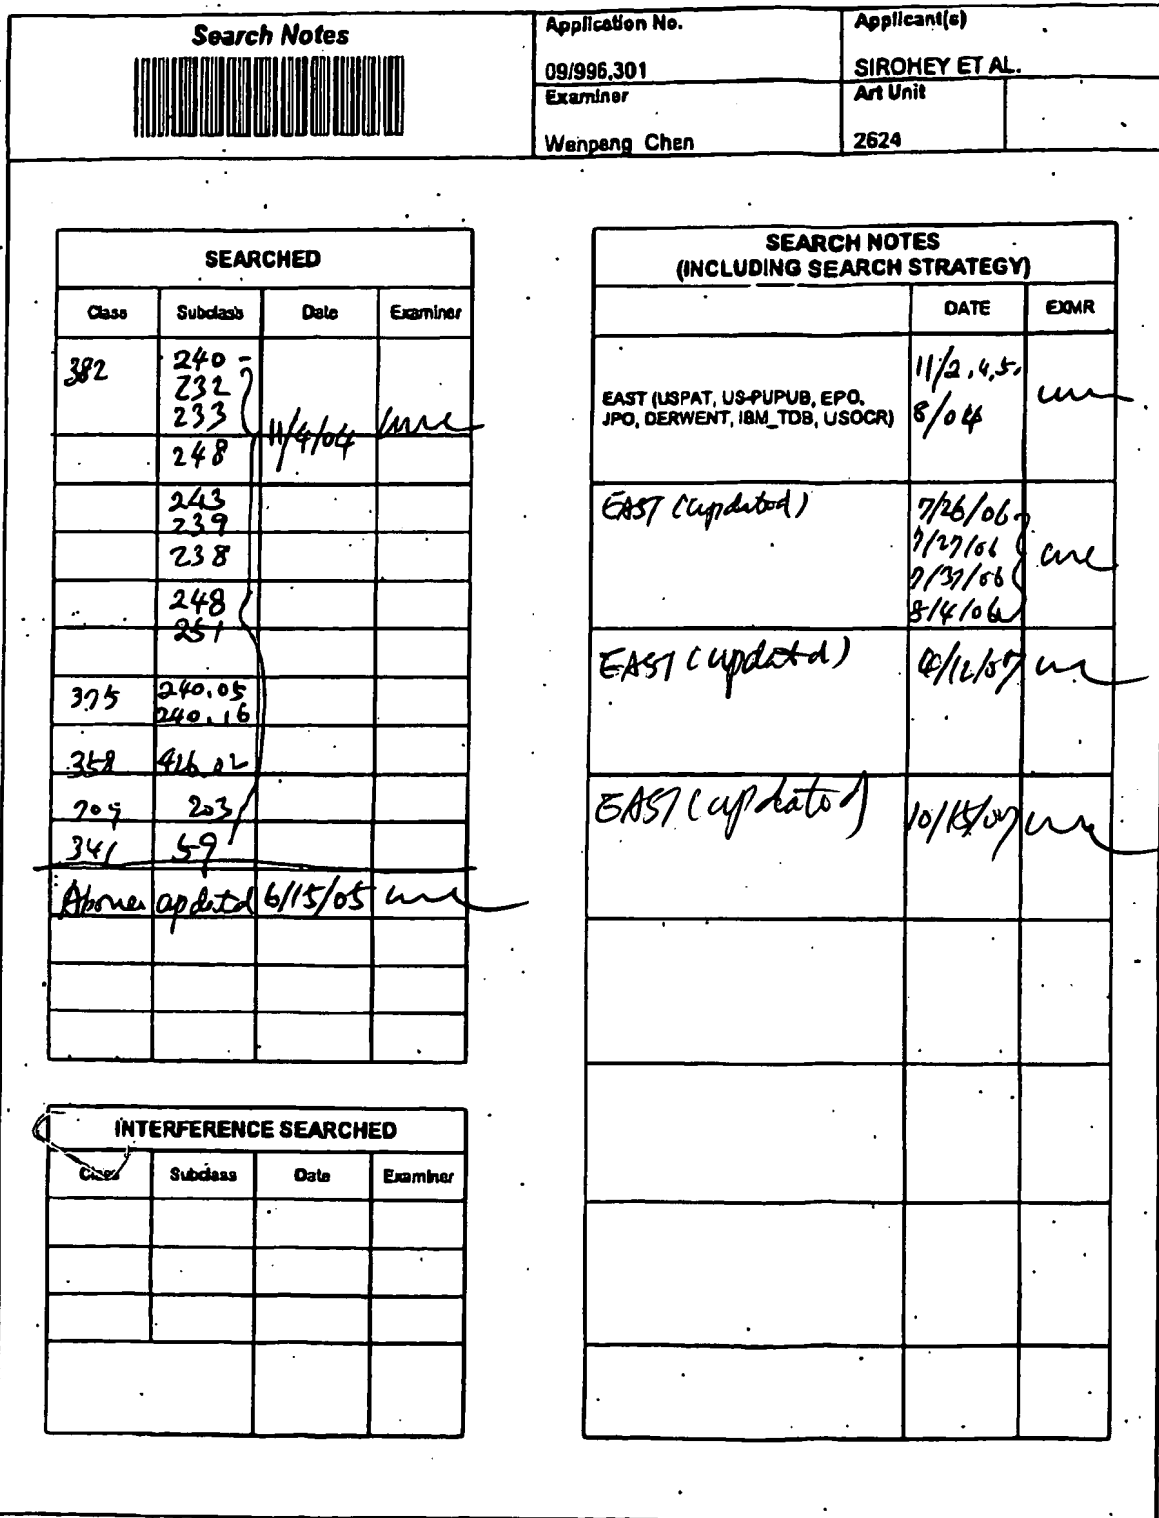 Search Notes
Application No.
09/996,301
Applicant(s)
SIROHEY ET AL.
Examiner
Wenpeng Chen
Art Unit
2624
SEARCHED
Class Subclass Date Examiner
382 240
232
233
248 11/4/04
243
239
238
248
251
375 240.05
240.16
358 426.02
709 203
341 59
Above updated 6/15/05
INTERFERENCE SEARCHED
Class Subclass Date Examiner
SEARCH NOTES
(INCLUDING SEARCH STRATEGY)
DATE EXMR
EAST (USPAT, US-PUPUB, EPO,
JPO, DERWENT, IBM_TDB, USOCR)
11/2,4,5,
8/04
EAST (updated) 7/26/06
7/27/06
7/31/06
8/4/06
EAST (updated) 4/12/07
EAST (updated) 10/15/07